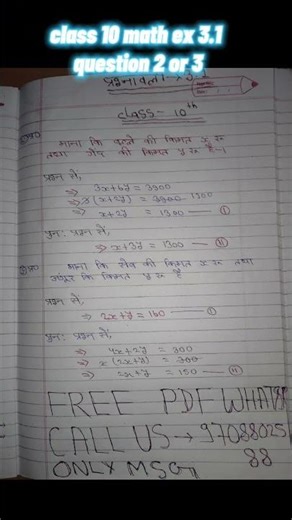 class 10 math ex 3.1
question 2 or 3
प्रश्नावली :- 3.1
class- 10th
माना कि बल्ले की किमत x रू
तथा गेंद की किमत y रू है-।
प्रश्न से,
⇒ 3x+6y = 3900
⇒ 3(x+2y) = 3900 1300
⇒ x+2y = 1300 — (I)
पुनः प्रश्न से,
⇒ x+3y = 1300 — (II)
माना कि सेव की किमत x रू तथा
अंगूर कि किमत y रू है
प्रश्न से,
⇒ 2x+y = 160 — (I)
पुनः प्रश्न से,
⇒ 4x+2y = 300
⇒ (2x+y) = 300
⇒ 2x+y = 150 — (II)
FREE PDF WHAT
CALL US → 97088025
88
ONLY MSG